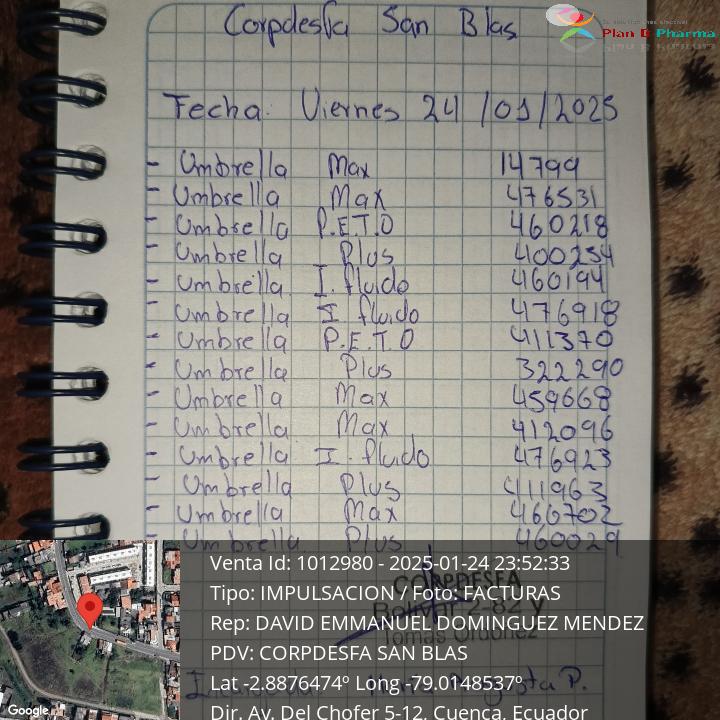 Corpdesfa San Blas
Plan B Pharma
Fecha: Viernes 24/01/2025
- Umbrella Max 14799
- Umbrella Max 476531
- Umbrella P.E.T.O 460218
- Umbrella Plus 400254
- Umbrella I. fluido 460194
- Umbrella I fluido 476918
- Umbrella P.E.T.O 411370
- Umbrella Plus 322290
- Umbrella Max 459668
- Umbrella Max 412096
- Umbrella I. fluido 476923
- Umbrella Plus 411963
- Umbrella Max 460702
- Umbrella Plus 460029
Venta Id: 1012980 - 2025-01-24 23:52:33
CORPDESFA
Tipo: IMPULSACION / Foto: FACTURAS
Bolívar 2-82 y
Rep: DAVID EMMANUEL DOMINGUEZ MENDEZ
Tomás Ordóñez
PDV: CORPDESFA SAN BLAS
Lat -2.8876474º Long -79.0148537º
P.
Dir. Av. Del Chofer 5-12, Cuenca, Ecuador
Google